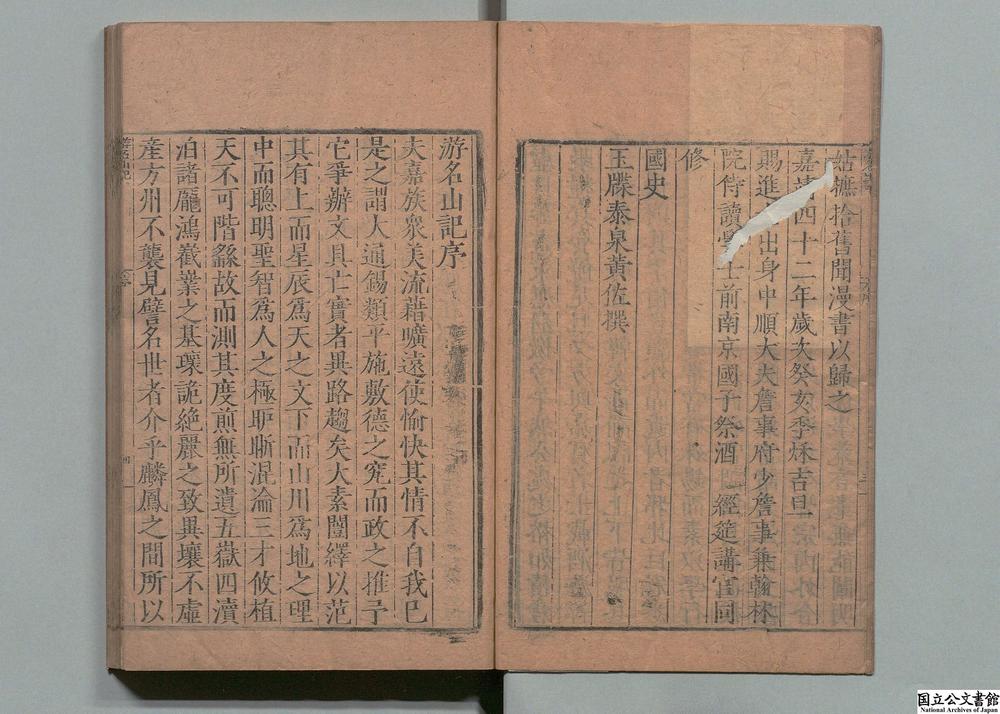 姑摭拾舊聞漫書以歸之
嘉靖四十二年歲次癸亥季秌吉旦
賜進士出身中順大夫詹事府少詹事兼翰林
院侍讀學士前南京國子祭酒 經筵講官同
修
國史
玉牒泰泉黃佐撰
游名山記序
夫嘉族衆美流藉曠遠使愉快其情不自我巳
是之謂人通錫類平施敷德之究而政之推予
它爭辦文具亡實者異路趨矣大素闓繹以范
其有上而星辰爲天之文下而山川爲地之理
中而聰明聖智爲人之極眇晰混淪三才攸植
天不可階繇故而測其度煎無所遺五嶽四瀆
泊諸龐鴻嶻嶪之基瓌詭絶麗之致異壤不虛
產方州不襲見譬名世者介乎麟鳳之間所以
国立公文書館
National Archives of Japan